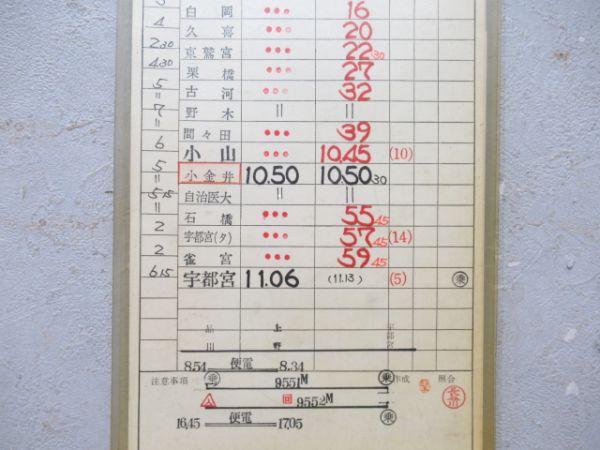 白岡 ••• 16
4 久喜 ••• 20
2.30 東鷲宮 ••• 22 30
4.30 栗橋 ••• 27
5 古河 ••• 32
〃 野木 〃 〃
7 間々田 ••• 39
6 小山 ••• 10.45 (10)
5 小金井 10.50 10.50 30
〃 自治医大 〃 〃
5.15 石橋 ••• 55 45
2 宇都宮(タ) ••• 57 45 (14)
2 雀宮 ••• 59 45
6.15 宇都宮 11.06 (11.13) (5) 乗
品川 上野 宇都宮
8.54 便電 8.34
注意事項 乗 9551M 乗 作成 照合
回 9552M
16.45 便電 17.05 乗